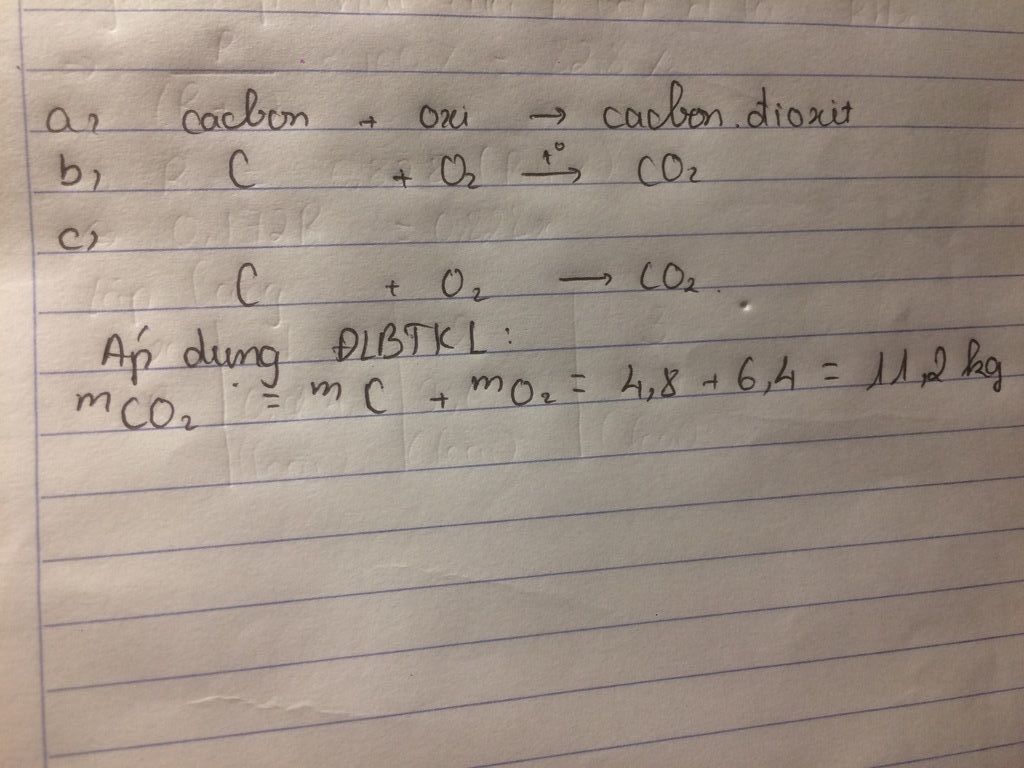 a, cacbon + oxi → cacbon.đioxit
b, C + O₂ →t° CO₂
c,
C + O₂ → CO₂.
Áp dụng ĐLBTKL:
mCO₂ = mC + mO₂ = 4,8 + 6,4 = 11,2 kg